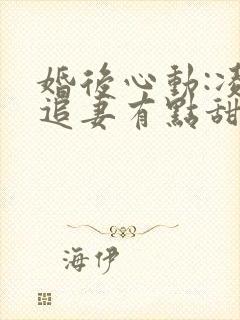 婚後心動:凌
追妻有點甜
海伊